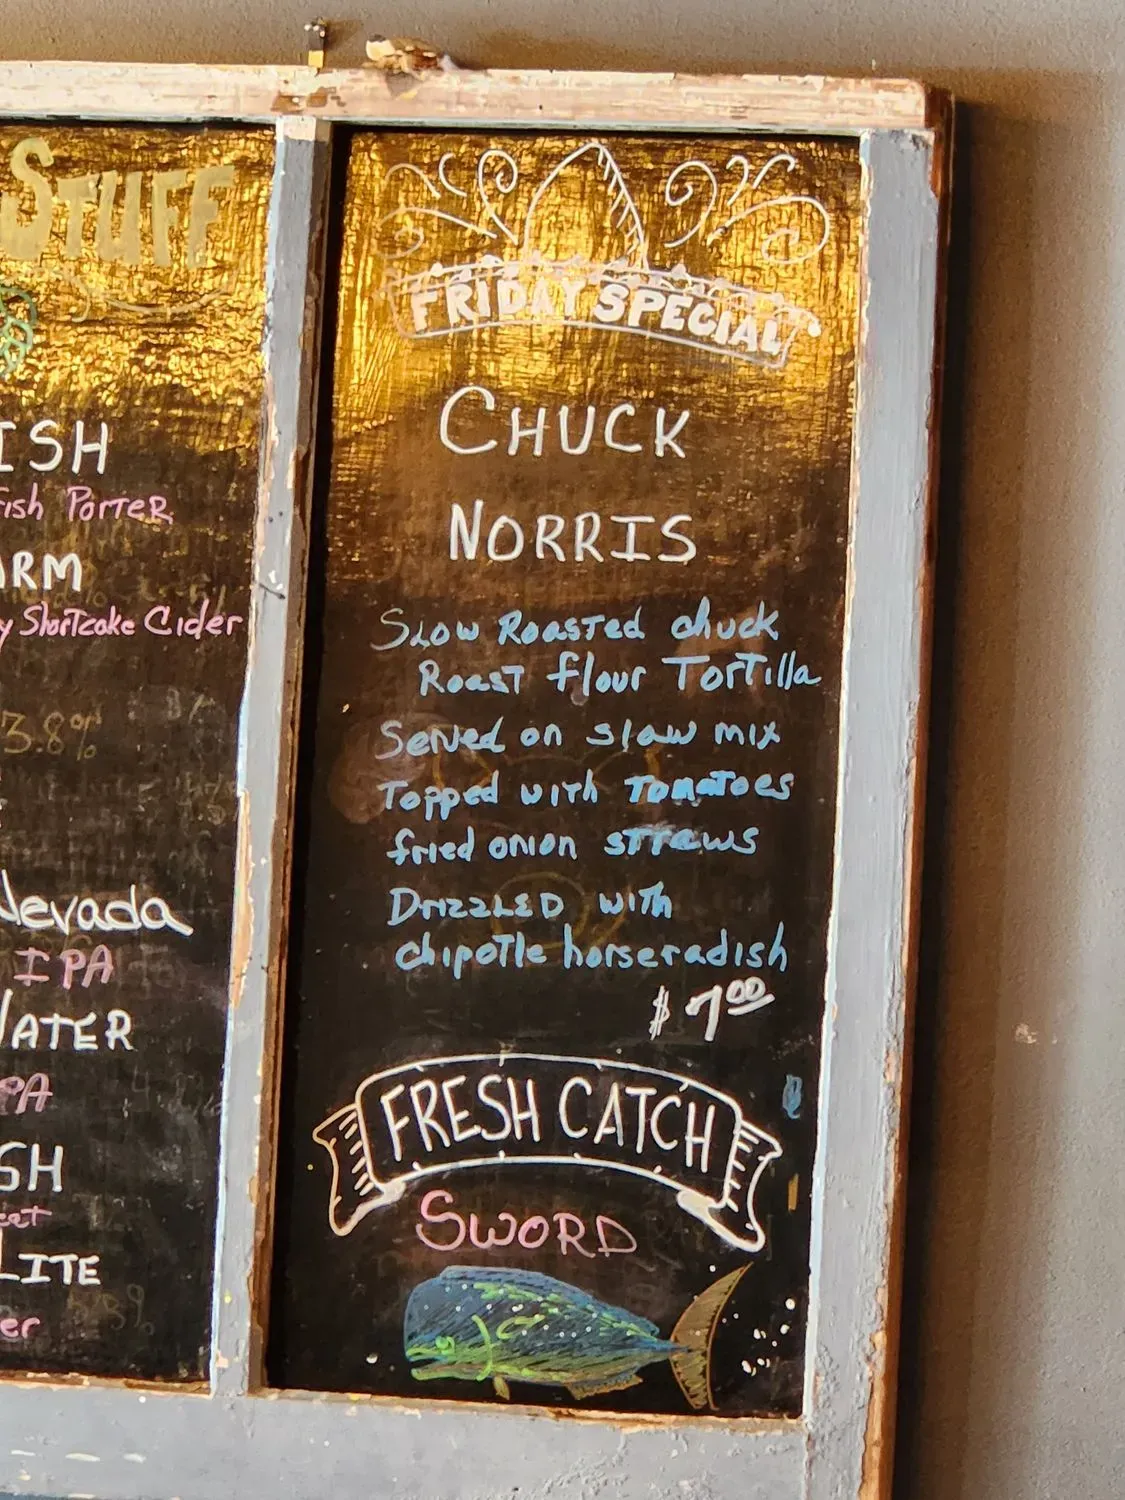 STUFF
ISH
fish PORTER
ARM
y ShorTcake Cider
3.8%
Nevada
IPA
WATER
PA
SH
eat
LITE
er
FRIDAY SPECIAL
CHUCK
NORRIS
Slow Roasted chuck
Roast flour TorTilla
Served on slaw mix
Topped with Tomatoes
fried onion straws
Drizzled with
chipotle horseradish
$ 7.00
FRESH CATCH
SWORD